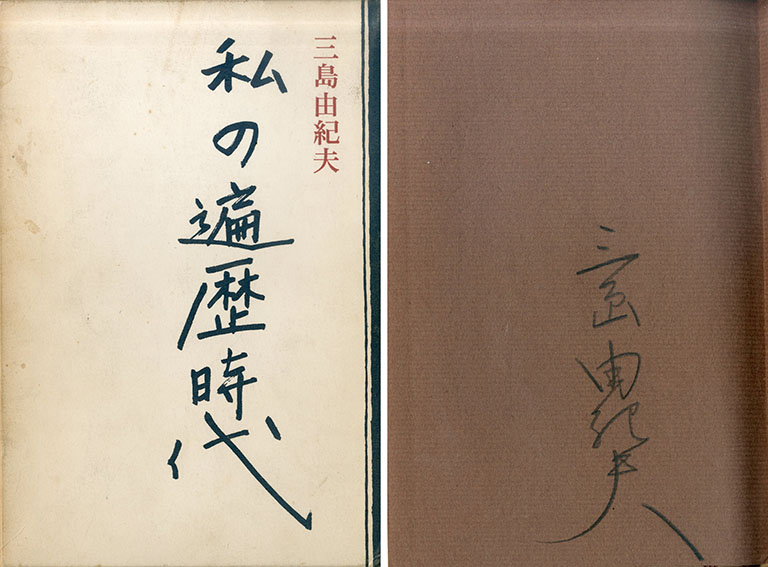 三島由紀夫
私の遍歴時代
三島由紀夫